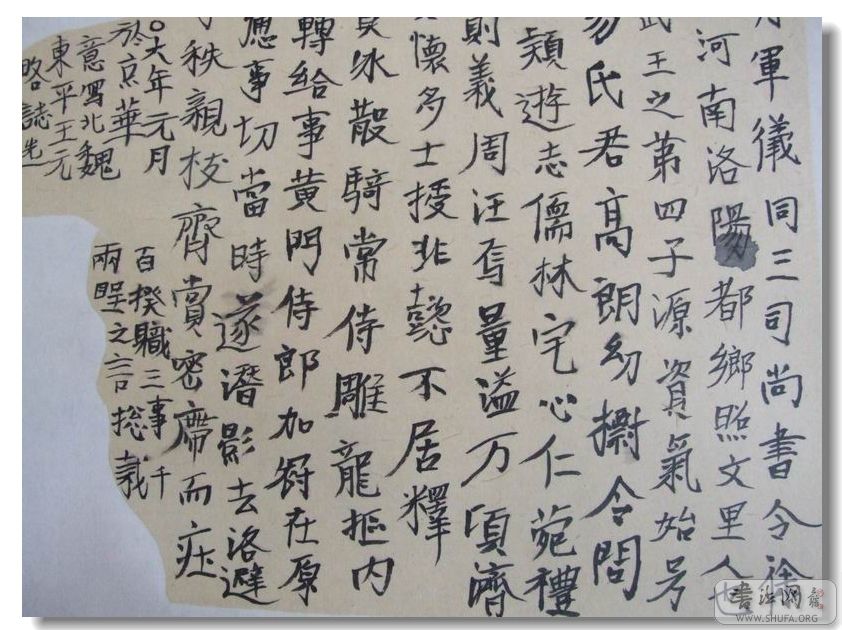 軍儀同三司尚書令徐
河南洛陽都鄉照文里人
武王之第四子源資氣始号
氏君高朗幼擅令問
穎遊志儒林宅心仁菀禮
則義周汪焉量溢万頃濟
懷多士授非懿不居釋
冰散騎常侍雕龍枢内
轉給事黃門侍郎加在原
應事切當時遂潛影去洛避
秩親枝齊賞密席而
百揆職三事千
兩聖之言総裁
大年元月
於京華
意寫北魏
東平王元
略誌先
書法網
WWW.SHUFA.ORG